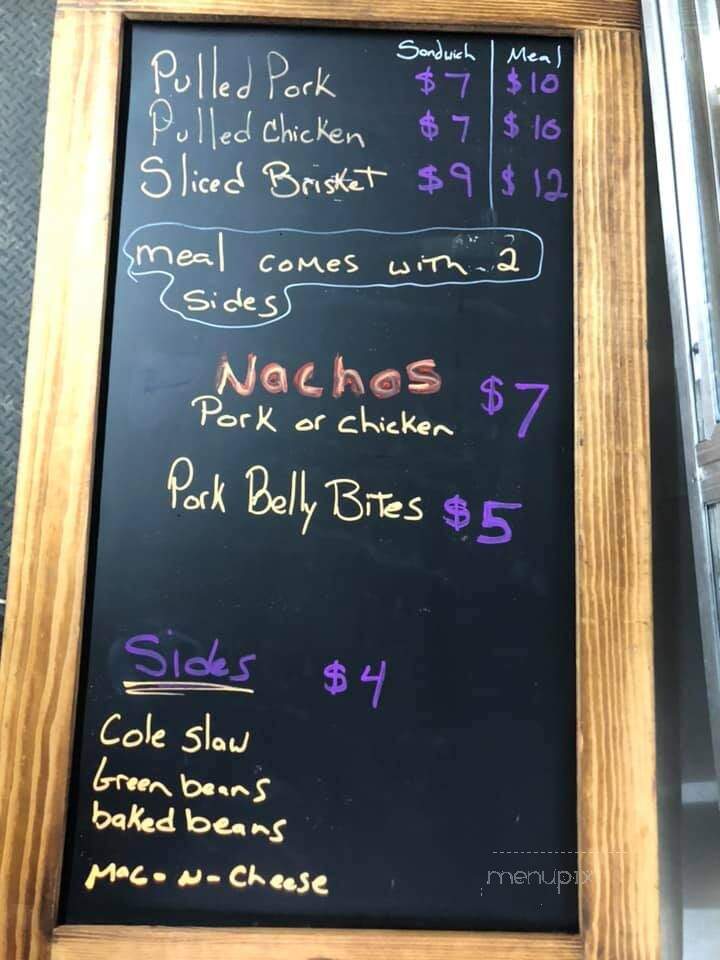 Sandwich | Meal
Pulled Pork $7 | $10
Pulled Chicken $7 | $10
Sliced Brisket $9 | $12
meal comes with 2
Sides
Nachos $7
Pork or chicken
Pork Belly Bites $5
Sides $4
Cole slaw
Green beans
baked beans
Mac-N-Cheese
menupix